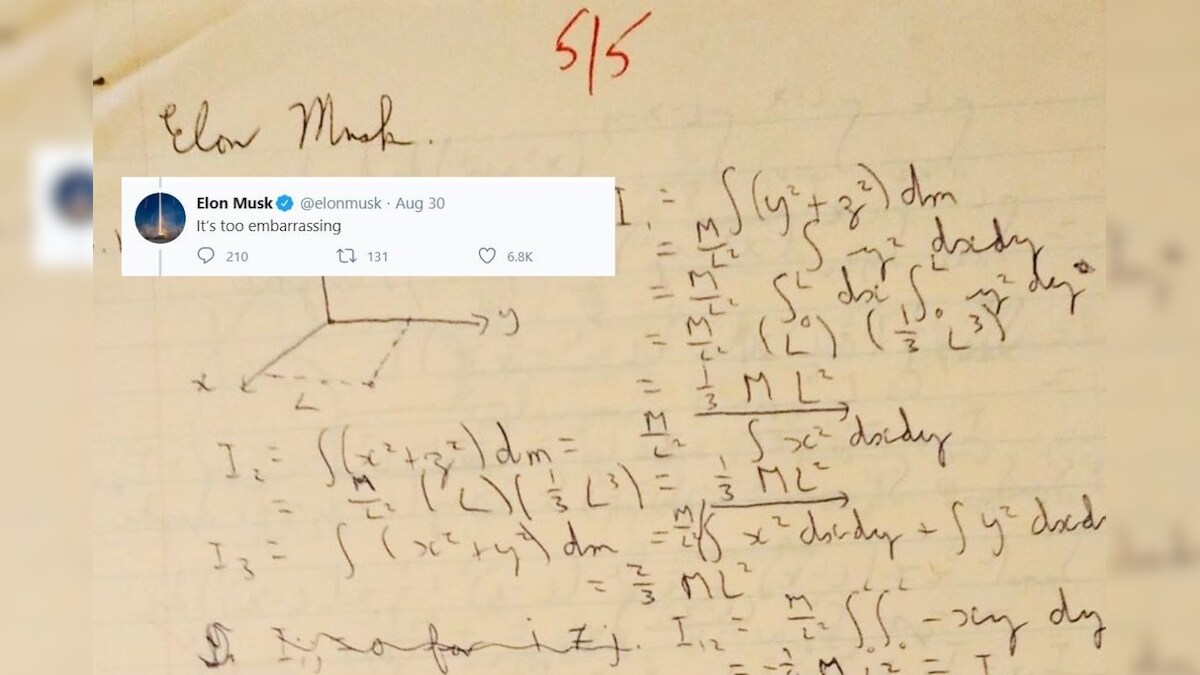 5/5
Elon Musk.
Elon Musk @elonmusk · Aug 30
It's too embarrassing
210 131 6.8K
I₁ = ∫(y²+z²) dm
= M/L² ∫ y² dxdy
= M/L² ∫₀ᴸ dx ∫₀ᴸ y² dy
= M/L² (L) (1/3 L³)
= 1/3 M L²
y
x
L
I₂ = ∫(x²+z²) dm = M/L² ∫ x² dxdy
= M/L² (L)(1/3 L³) = 1/3 ML²
I₃ = ∫ (x²+y²) dm = M/L² ∫ x² dxdy + ∫ y² dxd
= 2/3 ML²
I₁₂ = M/L² ∫₀ᴸ∫₀ᴸ -xy dy